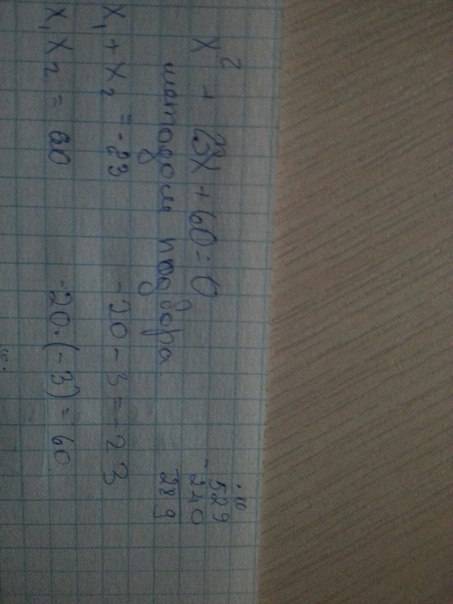 x² + 23x + 60 = 0
методом подбора
x₁ + x₂ = -23 -20 - 3 = -23
x₁ x₂ = 60 -20·(-3) = 60
529
- 240
289